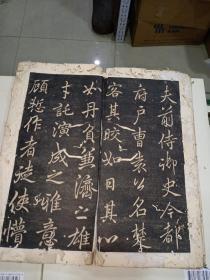 夫前侍御史今都
府戶曹袁公名楚
客其皎如日其心
如丹負兼濟之雄
才託演成之雅意
顧慙作者徒使懵